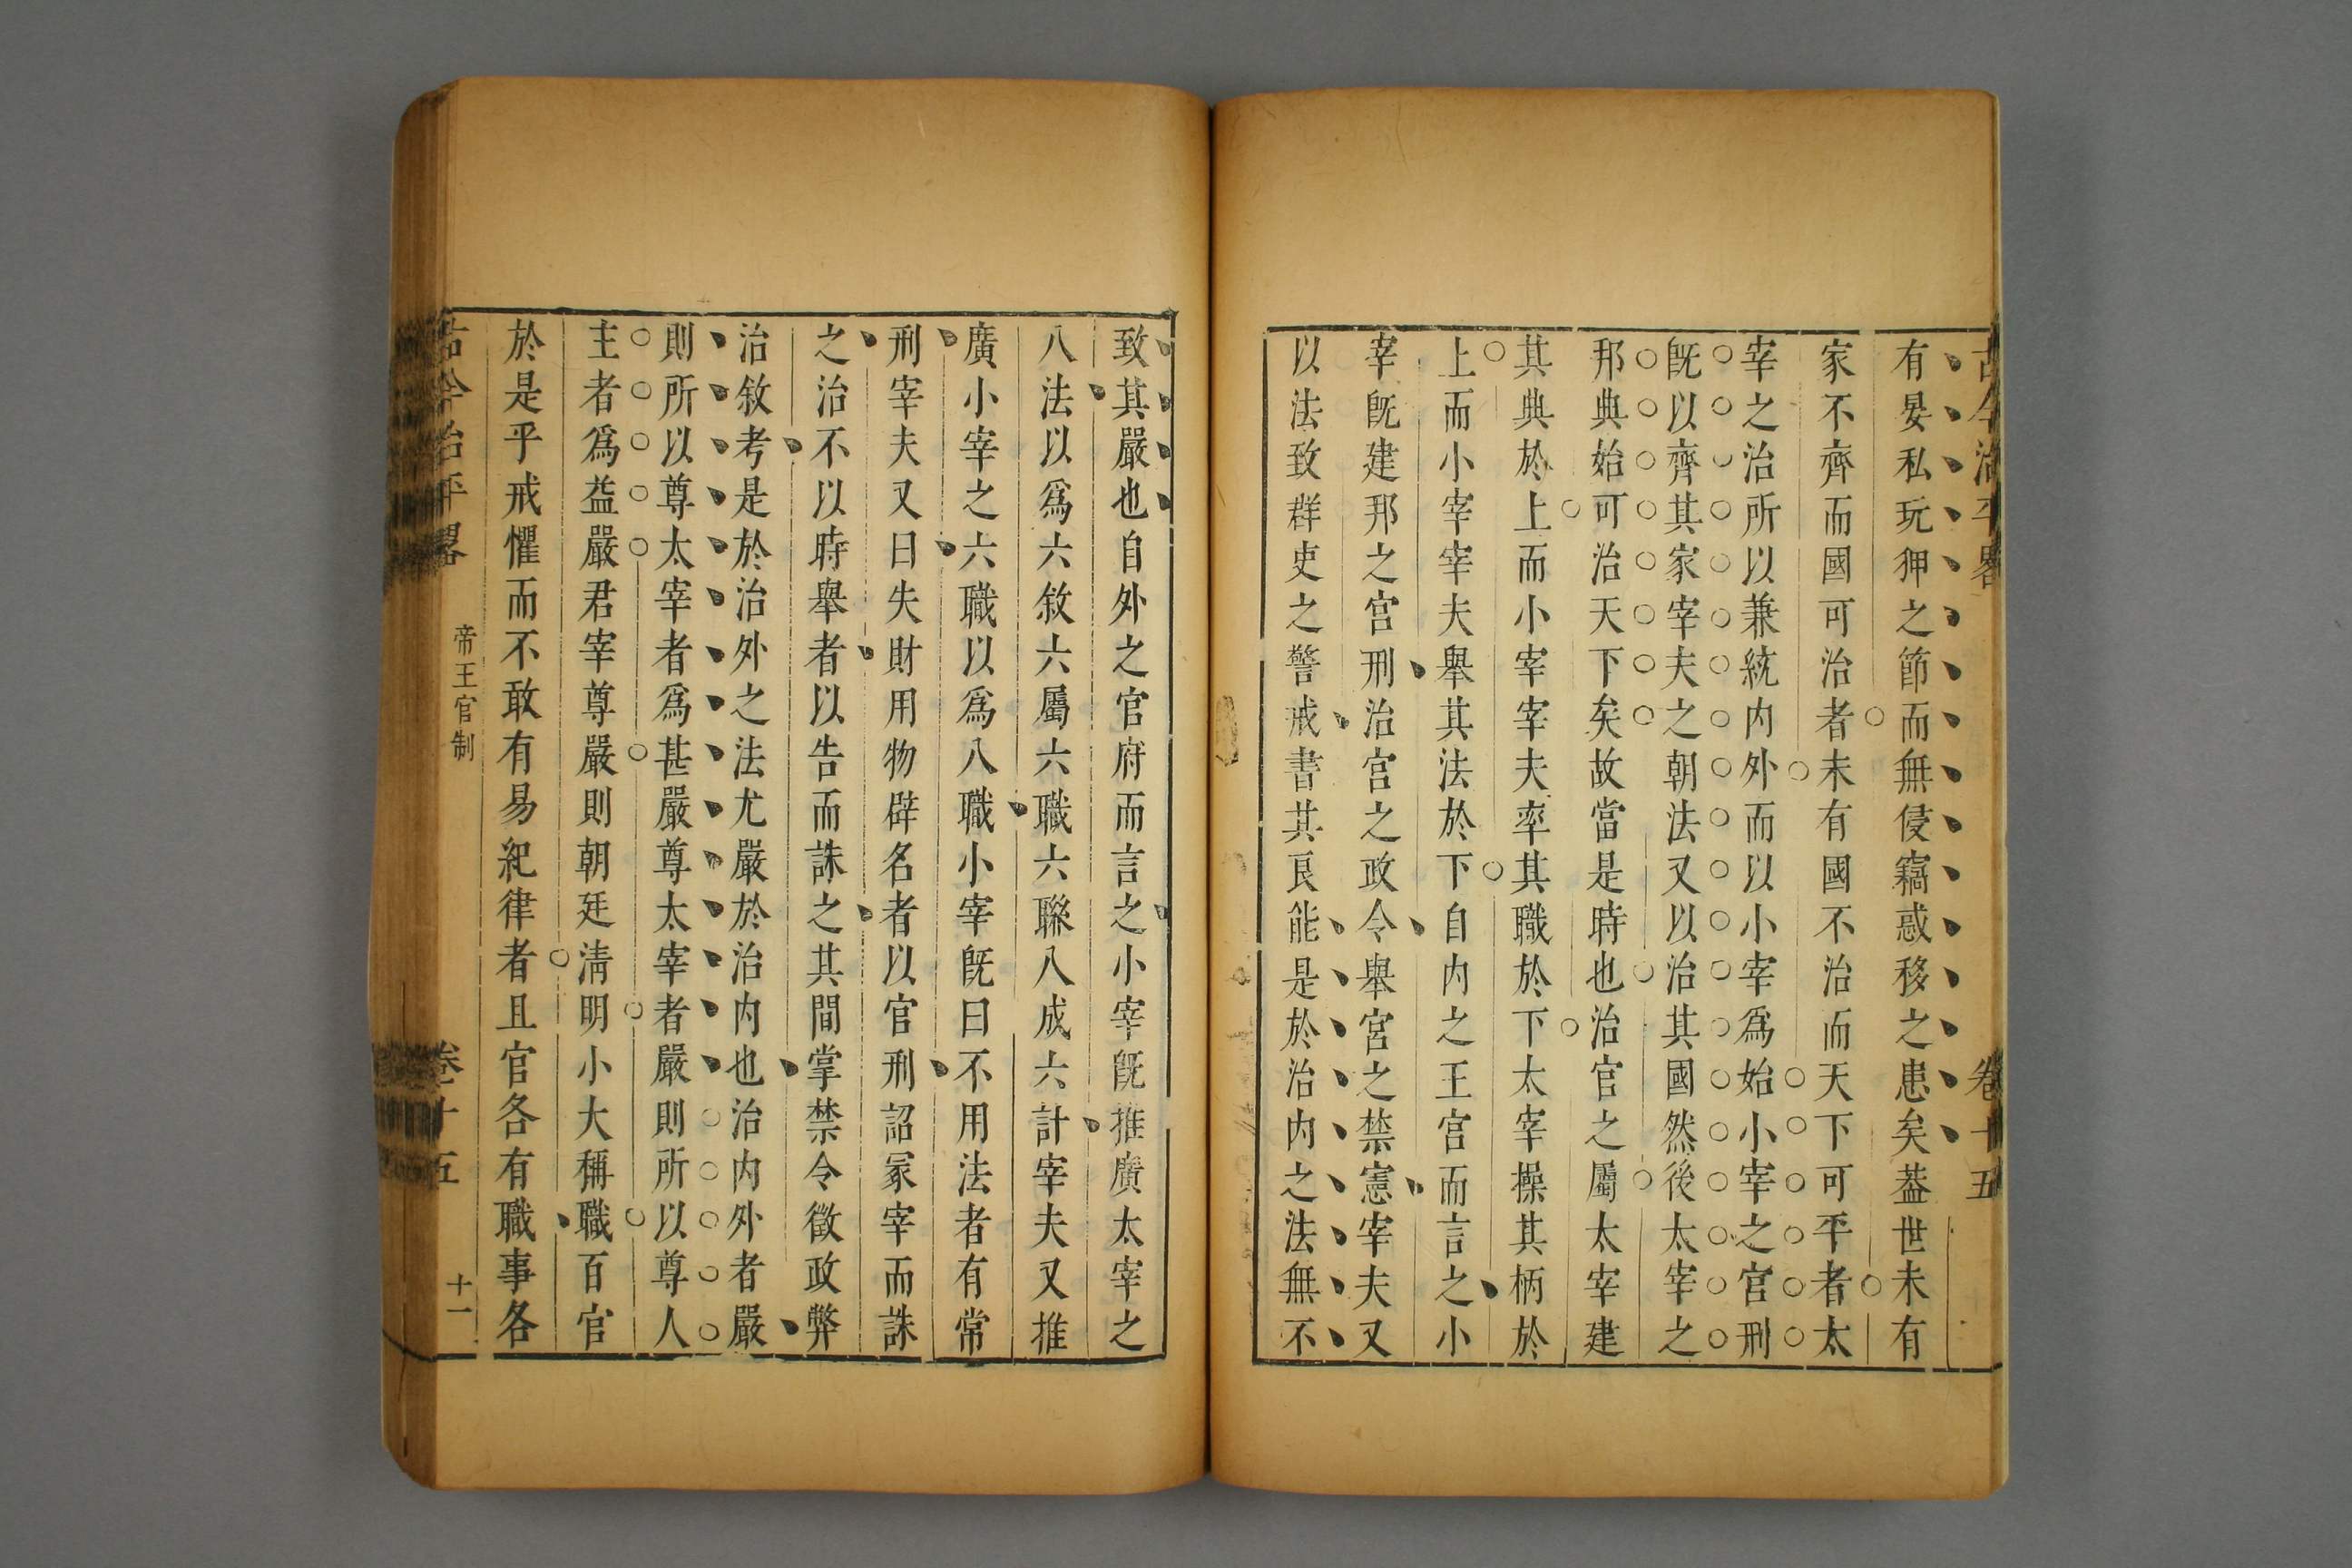 古今治平畧
卷十五
有晏私玩狎之節而無侵竊惑移之患矣葢世未有
家不齊而國可治者未有國不治而天下可平者太
宰之治所以兼統内外而以小宰爲始小宰之官刑
旣以齊其家宰夫之朝法又以治其國然後太宰之
邦典始可治天下矣故當是時也治官之屬太宰建
其典於上而小宰宰夫率其職於下太宰操其柄於
上而小宰宰夫舉其法於下自内之王宫而言之小
宰旣建邦之宫刑治宫之政令舉宫之禁憲宰夫又
以法致群吏之警戒書其良能是於治内之法無不
致其嚴也自外之官府而言之小宰旣推廣太宰之
八法以爲六敘六屬六職六聯八成六計宰夫又推
廣小宰之六職以爲八職小宰旣曰不用法者有常
刑宰夫又曰失財用物辟名者以官刑詔冢宰而誅
之治不以時舉者以告而誅之其間掌禁令徵政弊
治敘考是於治外之法尤嚴於治内也治内外者嚴
則所以尊太宰者爲甚嚴尊太宰者嚴則所以尊人
主者爲益嚴君宰尊嚴則朝廷淸明小大稱職百官
於是乎戒懼而不敢有易紀律者且官各有職事各
古今治平畧
帝王官制
卷十五
十一